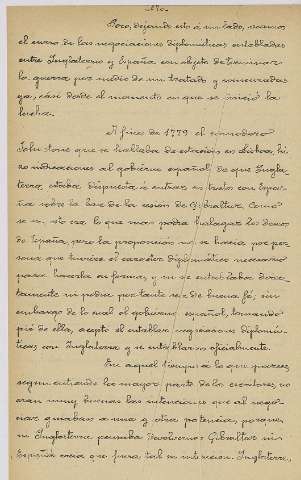 Pero, dejando esto á un lado, veamos
el curso de las negociaciones diplomáticas entabladas
entre Inglaterra y España con objeto de terminar
la guerra por medio de un tratado y comenzadas
ya, casi desde el momento en que se inició la
lucha.
A fines de 1779 el comodoro
Johnstone que se hallaba de estación en Lisboa, hi-
zo indicaciones al gobierno español, de que Ingla-
terra, estaba dispuesta á entrar en tratos con Espa-
ña sobre la base de la cesión de Gibraltar. Como
se ve, esto era lo que mas podia halagar los deseos
de España, pero la proposición no se hacia por per-
sona que tuviese el carácter diplomático necesario
para hacerla en forma, y ni se entablaba direc-
tamente ni podia por tanto ser de buena fé; sin
embargo de lo cual el gobierno español, tomando
pié de ella, aceptó el entablar negociaciones diplomá-
ticas con Inglaterra y se entablaron oficialmente.
En aquel tiempo á lo que parece,
segun entiende la mayor parte de los escritores, no
eran muy buenas las intenciones que al nego-
ciar guiaban á una y otra potencia, porque
ni Inglaterra pensaba devolvernos Gibraltar ni
España creia que fuera tal su intención. Inglaterra,